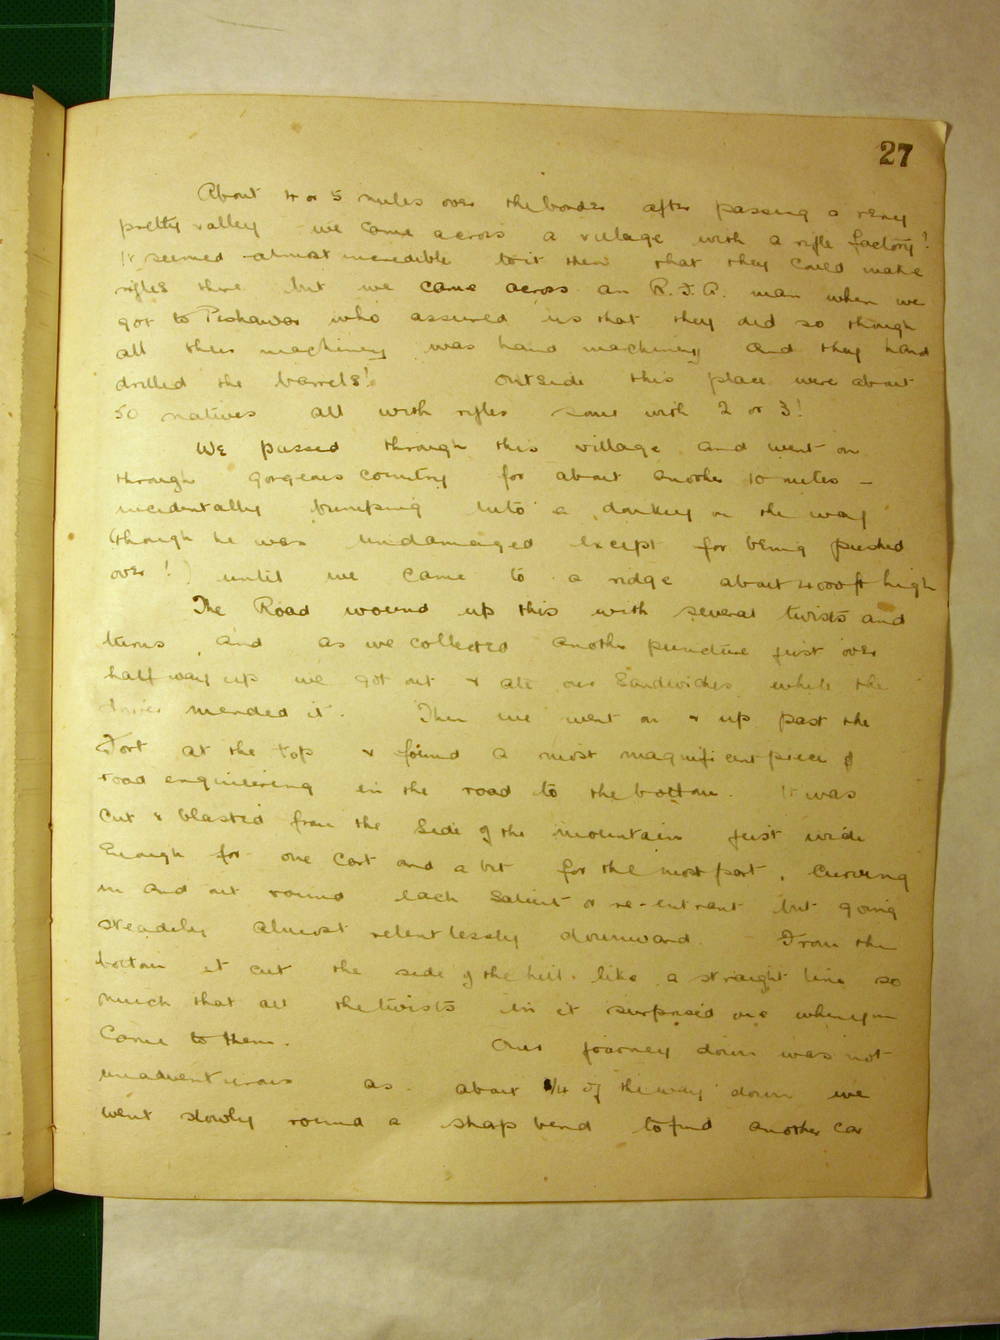 27
About 4 or 5 miles over the border after passing a very
pretty valley we came across a village with a rifle factory!
It seemed almost incredible to it then that they could make
rifles there but we came across an R.F.A. man when we
got to Peshawar who assured us that they did so though
all their machinery was hand machinery and they hand
drilled the barrels! Outside this place were about
50 natives all with rifles some with 2 or 3!
We passed through this village and went on
through gorgeous country for about another 10 miles –
incidentally bumping into a donkey on the way
(though he was undamaged except for being pushed
over!) until we came to a ridge about 4000ft high
The Road wound up this with several twists and
turns, and as we collected another puncture just over
half way up we got out & ate our sandwiches while the
driver mended it. Then we went on & up past the
Fort at the top & found a most magnificent piece of
road engineering in the road to the bottom. It was
cut & blasted from the side of the mountain just wide
enough for one cart and a bit for the most part, curving
in and out round each salient & re-entrant but going
steadily almost relentlessly downward. From the
bottom it cut the side of the hill like a straight line so
much that all the twists in it surprised one when you
came to them. Our journey down was not
unadventurous as about 3/4 of the way down we
went slowly round a shap bend to find another car